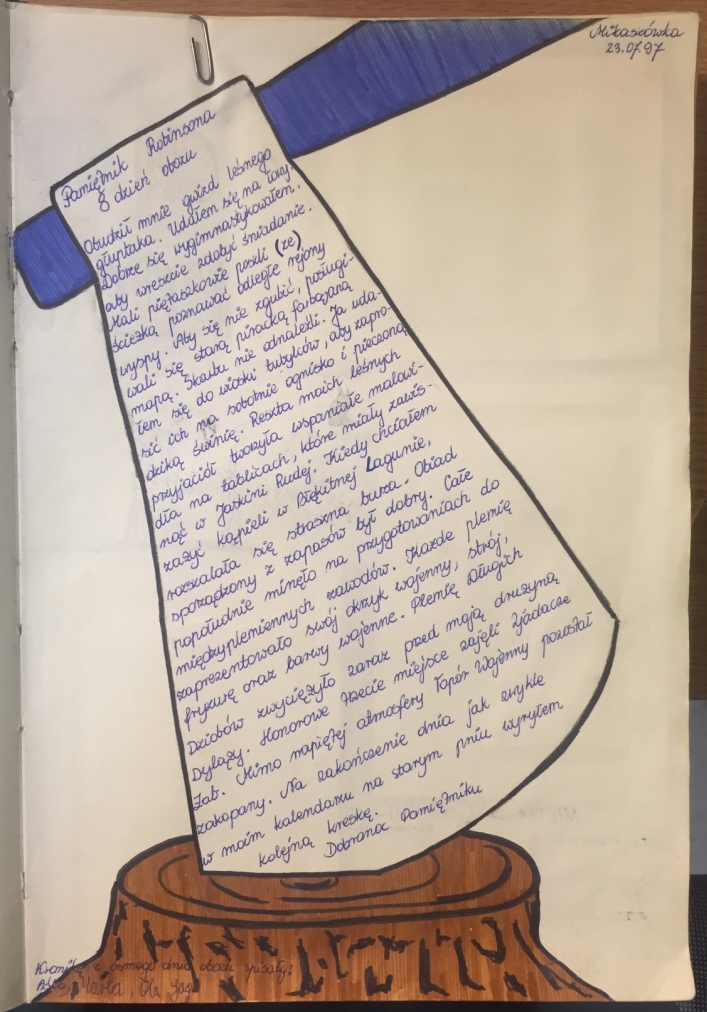 Mikaszówka
23.07.97
Pamiętnik Robinsona
8 dzień obozu
Obudził mnie gwizd leśnego
głuptaka. Udałem się na łowy
Dobrze się wygimnastykowałem,
aby wreszcie zdobyć śniadanie.
Mali piętaszkowie poszli (ze)
ścieżką poznawać odległe rejony
wyspy. Aby się nie zgubić, posługi-
wali się starą piracką farbowaną
mapą. Skarbu nie odnaleźli. Ja uda-
łem się do wioski tubylców, aby zapro-
sić ich na sobotnie ognisko i pieczoną
dziką świnię. Reszta moich leśnych
przyjaciół tworzyła wspaniałe malowi-
dła na tablicach, które miały zawis-
nąć w Jaskini Rudej. Kiedy chciałem
zażyć kąpieli w Błękitnej Lagunie,
rozszalała się straszna burza. Obiad
sporządzony z zapasów był dobry. Całe
popołudnie minęło na przygotowaniach do
międzyplemiennych zawodów. Każde plemię
zaprezentowało swój okrzyk wojenny, strój,
fryzurę oraz barwy wojenne. Plemię Długich
Dziobów zwyciężyło zaraz przed moją drużyną
Dylązy. Honorowe trzecie miejsce zajęli Zjadacze
Żab. Mimo napiętej atmosfery Topór Wojenny pozostał
zakopany. Na zakończenie dnia jak zwykle
w moim kalendarzu na starym pniu wyryłem
kolejną kreskę.
Dobranoc Pamiętniku
Kronikę z ósmego dnia obozu spisały:
Marta, Ola